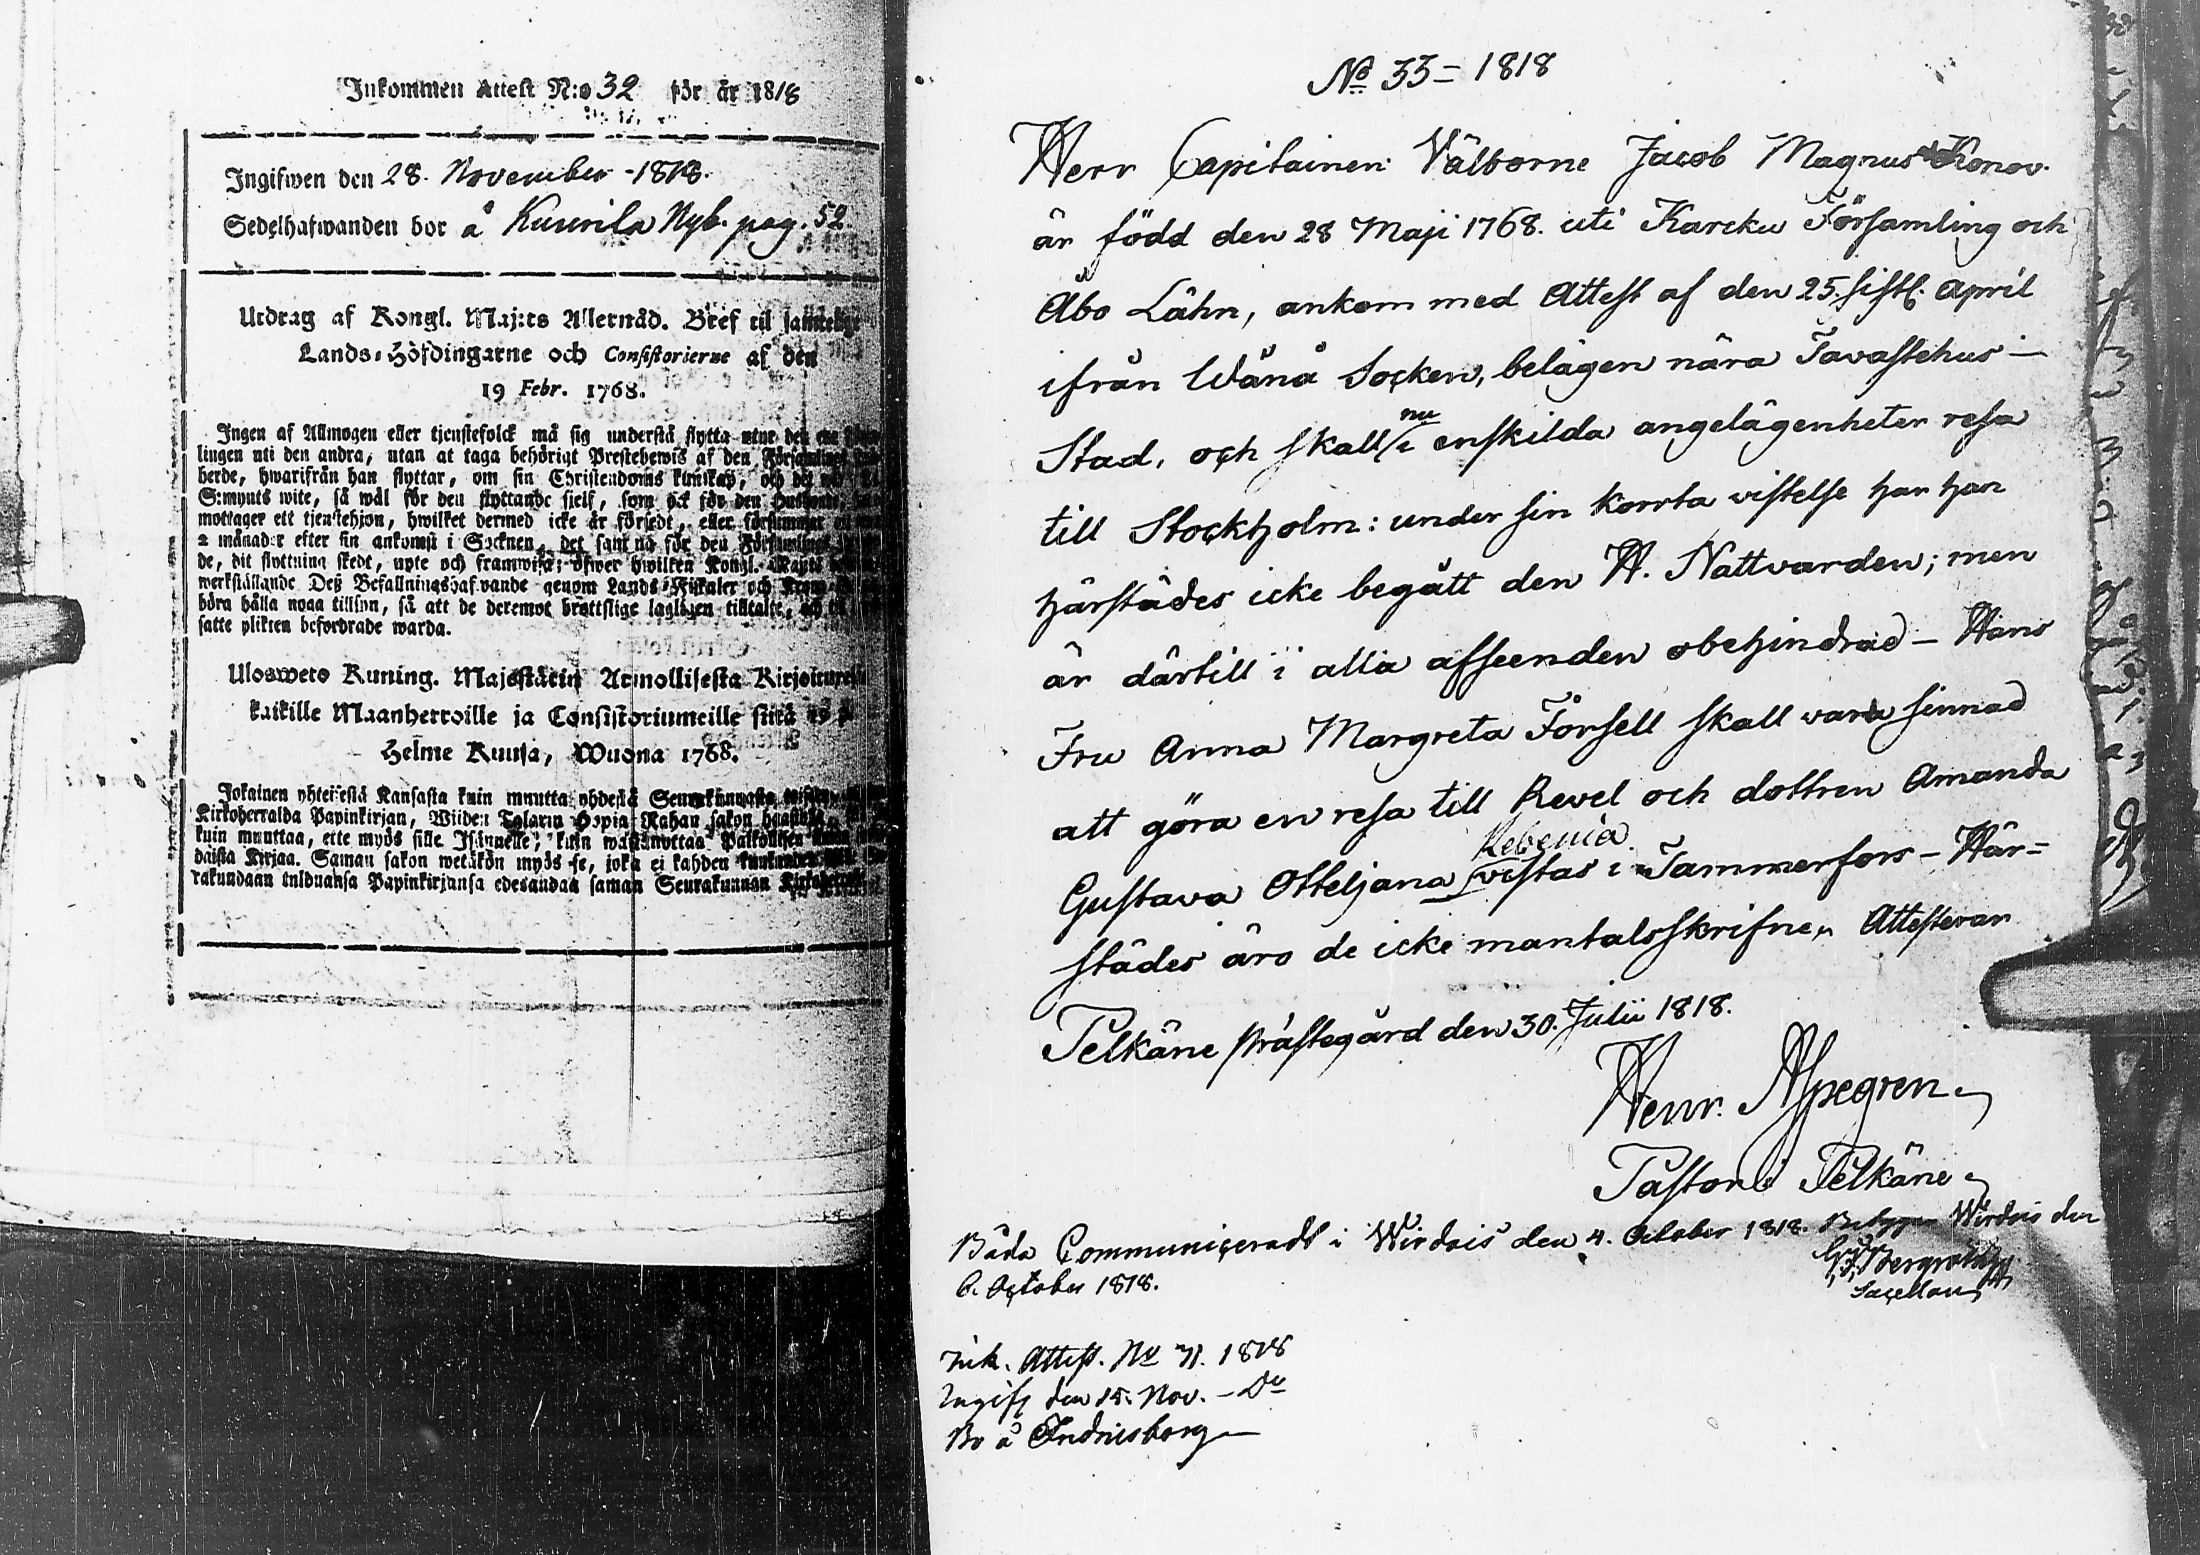 Inkommen Attest N:o 32 för år 1818
Ingifwen den 28. November - 1818.
Sedelhafwanden bor å Kuurila Nyb. pag. 52.
Utdrag af Kongl. Maj:ts Allernåd. Bref til samtelige
Lands-Höfdingarne och Consistorierne af den
19 Febr. 1768.
Ingen af Allmogen eller tjenstefolck må sig understå flytta utur den ena
lingen uti den andra, utan at taga behörigt Prestebewis af den Församlings
herde, hwarifrån han flyttar, om sin Christendoms kunskap, och det wid
S:mynts wite, så wäl för den flyttande sielf, som ock för den Husbonde
mottager ett tjenstehjon, hwilket dermed icke är försedt, eller försummar
2 månader efter sin ankomst i Socknen, det samma för den Församlings
de, dit flyttning skedt, upte och framwisa; öfwer hwilken Kongl. Maj:ts
werkställande Deß Befallningshafwande genom Lands-Fiskaler och Krono
böra hålla noga tillsyn, så att de deremot brottslige lagligen tilltalte, och til
satte plikten befordrade warda.
Ulosweto Kuning. Majestätin Armollisesta Kirjoituxesta
kaikille Maanherroille ja Consistoriumeille siitä 19 p.
Helme Kuusa, Wuona 1768.
Jokainen yhteisestä Kansasta kuin muutta yhdestä Seurakunnasta
Kirkoherralda Papinkirjan, Wiiden Talarin Hopia Rahan sakon haastolla
kuin muuttaa, ette myös sille Isännelle, kuin wastanottaa Palkollisen
daista Kirjaa. Saman sakon wetäkön myös se, joka ei kahden kuukauden
rakundaan tulduansa Papinkirjansa edesandaa saman Seurakunnan Kirkoherralle
No 33 = 1818
Herr Capitainen Välborne Jacob Magnus Konov.
är född den 28 Maji 1768. uti Karcku Församling och
Åbo Lähn, ankom med Attest af den 25 sistl. April
ifrån Wånå Socken, belägen nära Tavastehus -
Stad, och skall nu i enskilda angelägenheter resa
till Stockholm: under sin korrta vistelse har han
härstädes icke begått den H. Nattvarden; men
är därtill i alla afseenden obehindrad - Hans
Fru Anna Margreta Forsell skall vara sinnad
att göra en resa till Revel och dottren Amanda
Rebenia
Gustava Otteljana vistas i Tammerfors - Här=
städes äro de icke mantalsskrifne, Attesterar
Pelkäne Prästegård den 30. Julii 1818.
Henr. Alpegren
Pastor i Pelkäne
Båda Communiceradt i Wirdois den 4. October 1818. Betygar Wirdois den
6. October 1818.
Bergroth
Sacellan
Ink. Attest. No 31. 1818
Ingift den 15. Nov. - Do
Bo å Indriisborg